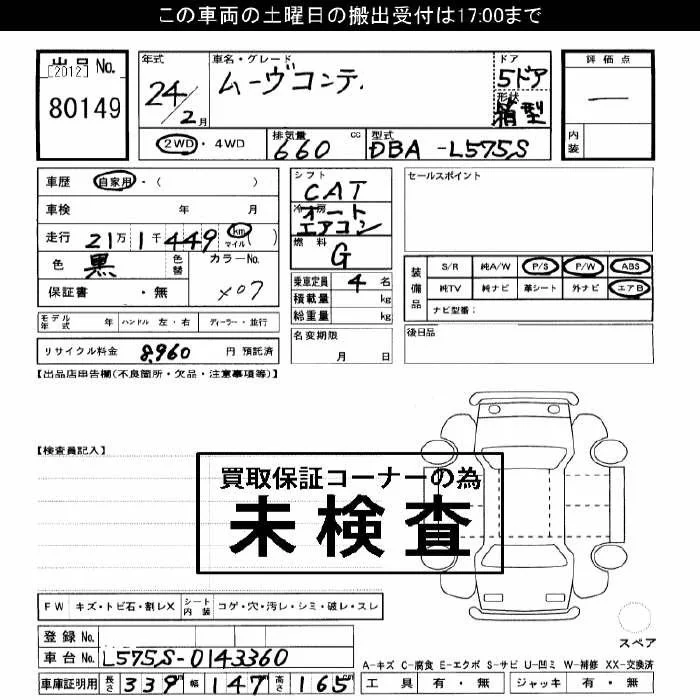 この車両の土曜日の搬出受付は17:00まで
出品 No.
[2012]
80149
年式
24/2月
車名・グレード
ムーヴコンテ
ドア
5ドア
形状
箱型
評価点
―
内装
2WD ・ 4WD
排気量
660 cc
型式
DBA-L575S
車歴 自家用 ・ ( )
車検 年 月
走行 21万1千449 km マイル ( )
色 黒 色替 カラーNo. X07
保証書 ・ 無
モデル年式 年 ハンドル 左・右 ディーラー・並行
リサイクル料金 8,960 円 預託済
シフト
CAT
冷房
オートエアコン
燃料
G
乗車定員 4 名
積載量 kg
総重量 kg
名変期限
月 日
セールスポイント
装備品
S/R 純A/W P/S P/W ABS
純TV 純ナビ 革シート 外ナビ エアB
ナビ型番:
後日品
【出品店申告欄(不良箇所・欠品・注意事項等)】
【検査員記入】
買取保証コーナーの為
未検査
FW キズ・トビ石・割レX シート内装 コゲ・穴・汚レ・シミ・破レ・スレ
登録 No.
車台 No. L575S-0143360
車庫証明用 長さ 339cm 幅 147cm 高さ 165cm
スペア
A-キズ C-腐食 E-エクボ S-サビ U-凹ミ W-補修 XX-交換済
工具 有・無 ジャッキ 有・無